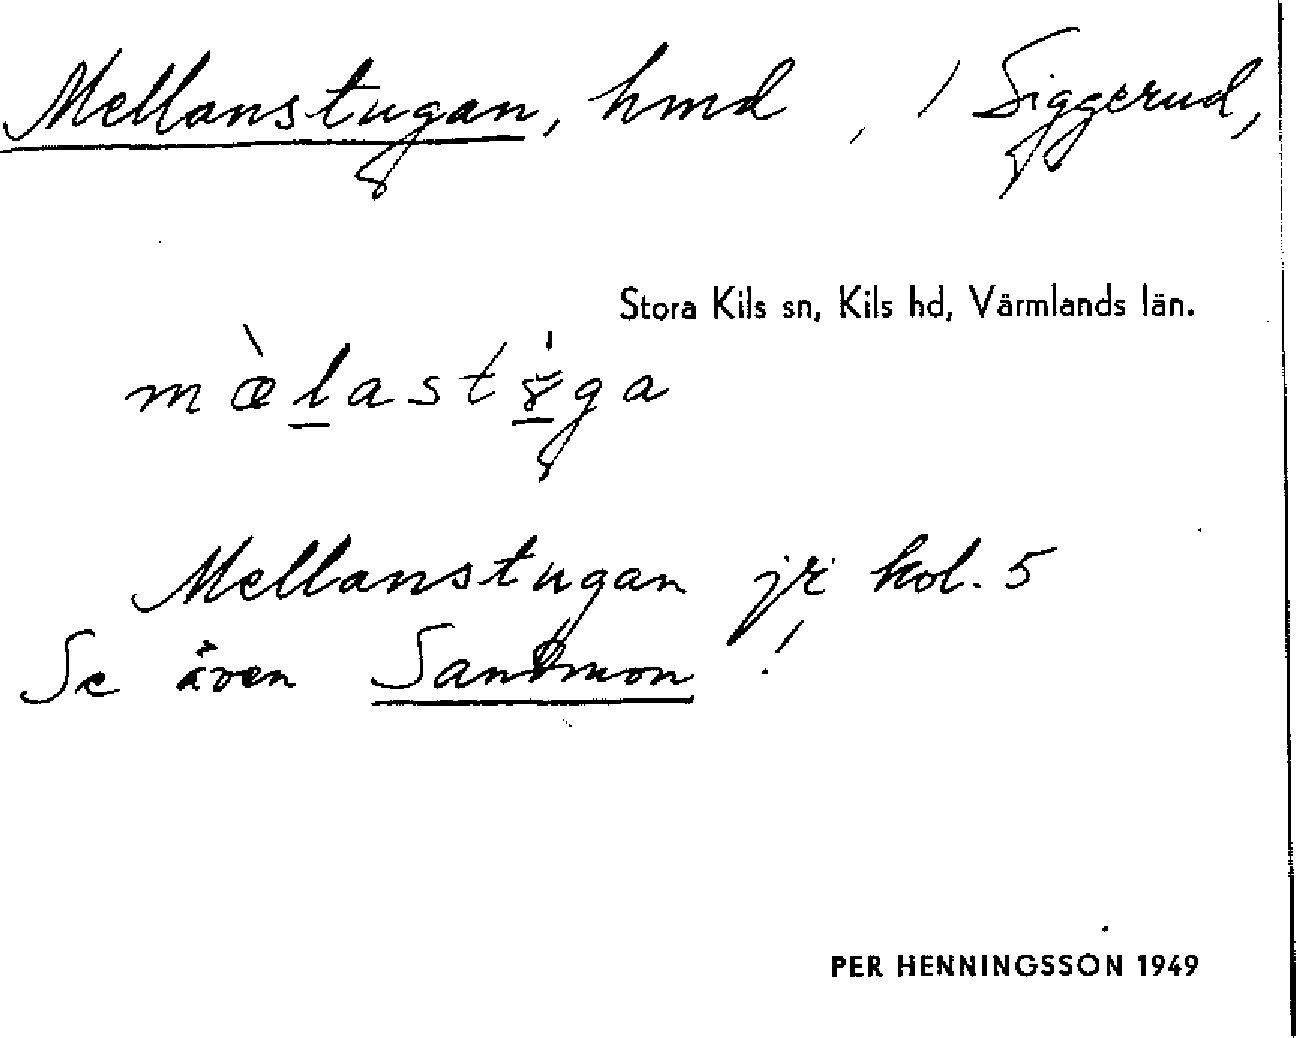 Mellanstugan, hmd , 1 Siggerud,
Stora Kils sn, Kils hd, Värmlands län.
Mellanstugan jr kol. 5
Se även Sandmon !
PER HENNINGSSON 1949